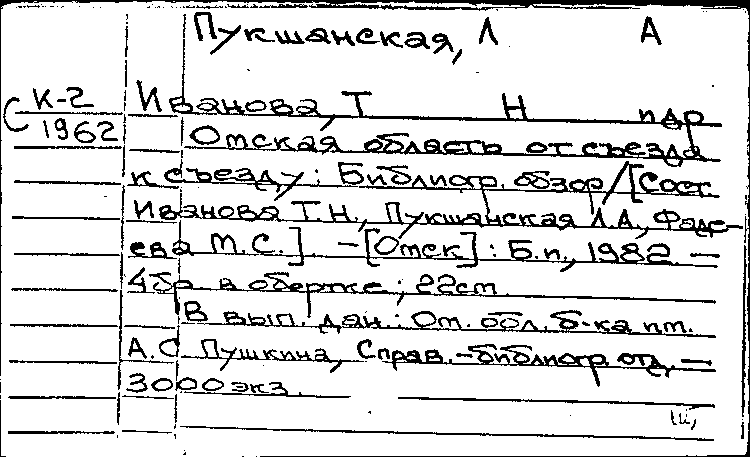 Пукшанская, Л А
К-2 Иванова, Т Н и др
С 1962 Омская область от съезда
к съезду: Библиогр. обзор/[Сост.
Иванова Т.Н., Пукшанская Л.А., Фаде-
ева М.С.]. -[Омск]: Б.и., 1982. —
4бр. в обертке; 22см.
В вып. дан.: Ом. обл. б-ка им.
А.С Пушкина, Справ.-библиогр. отд. —
3000 экз.